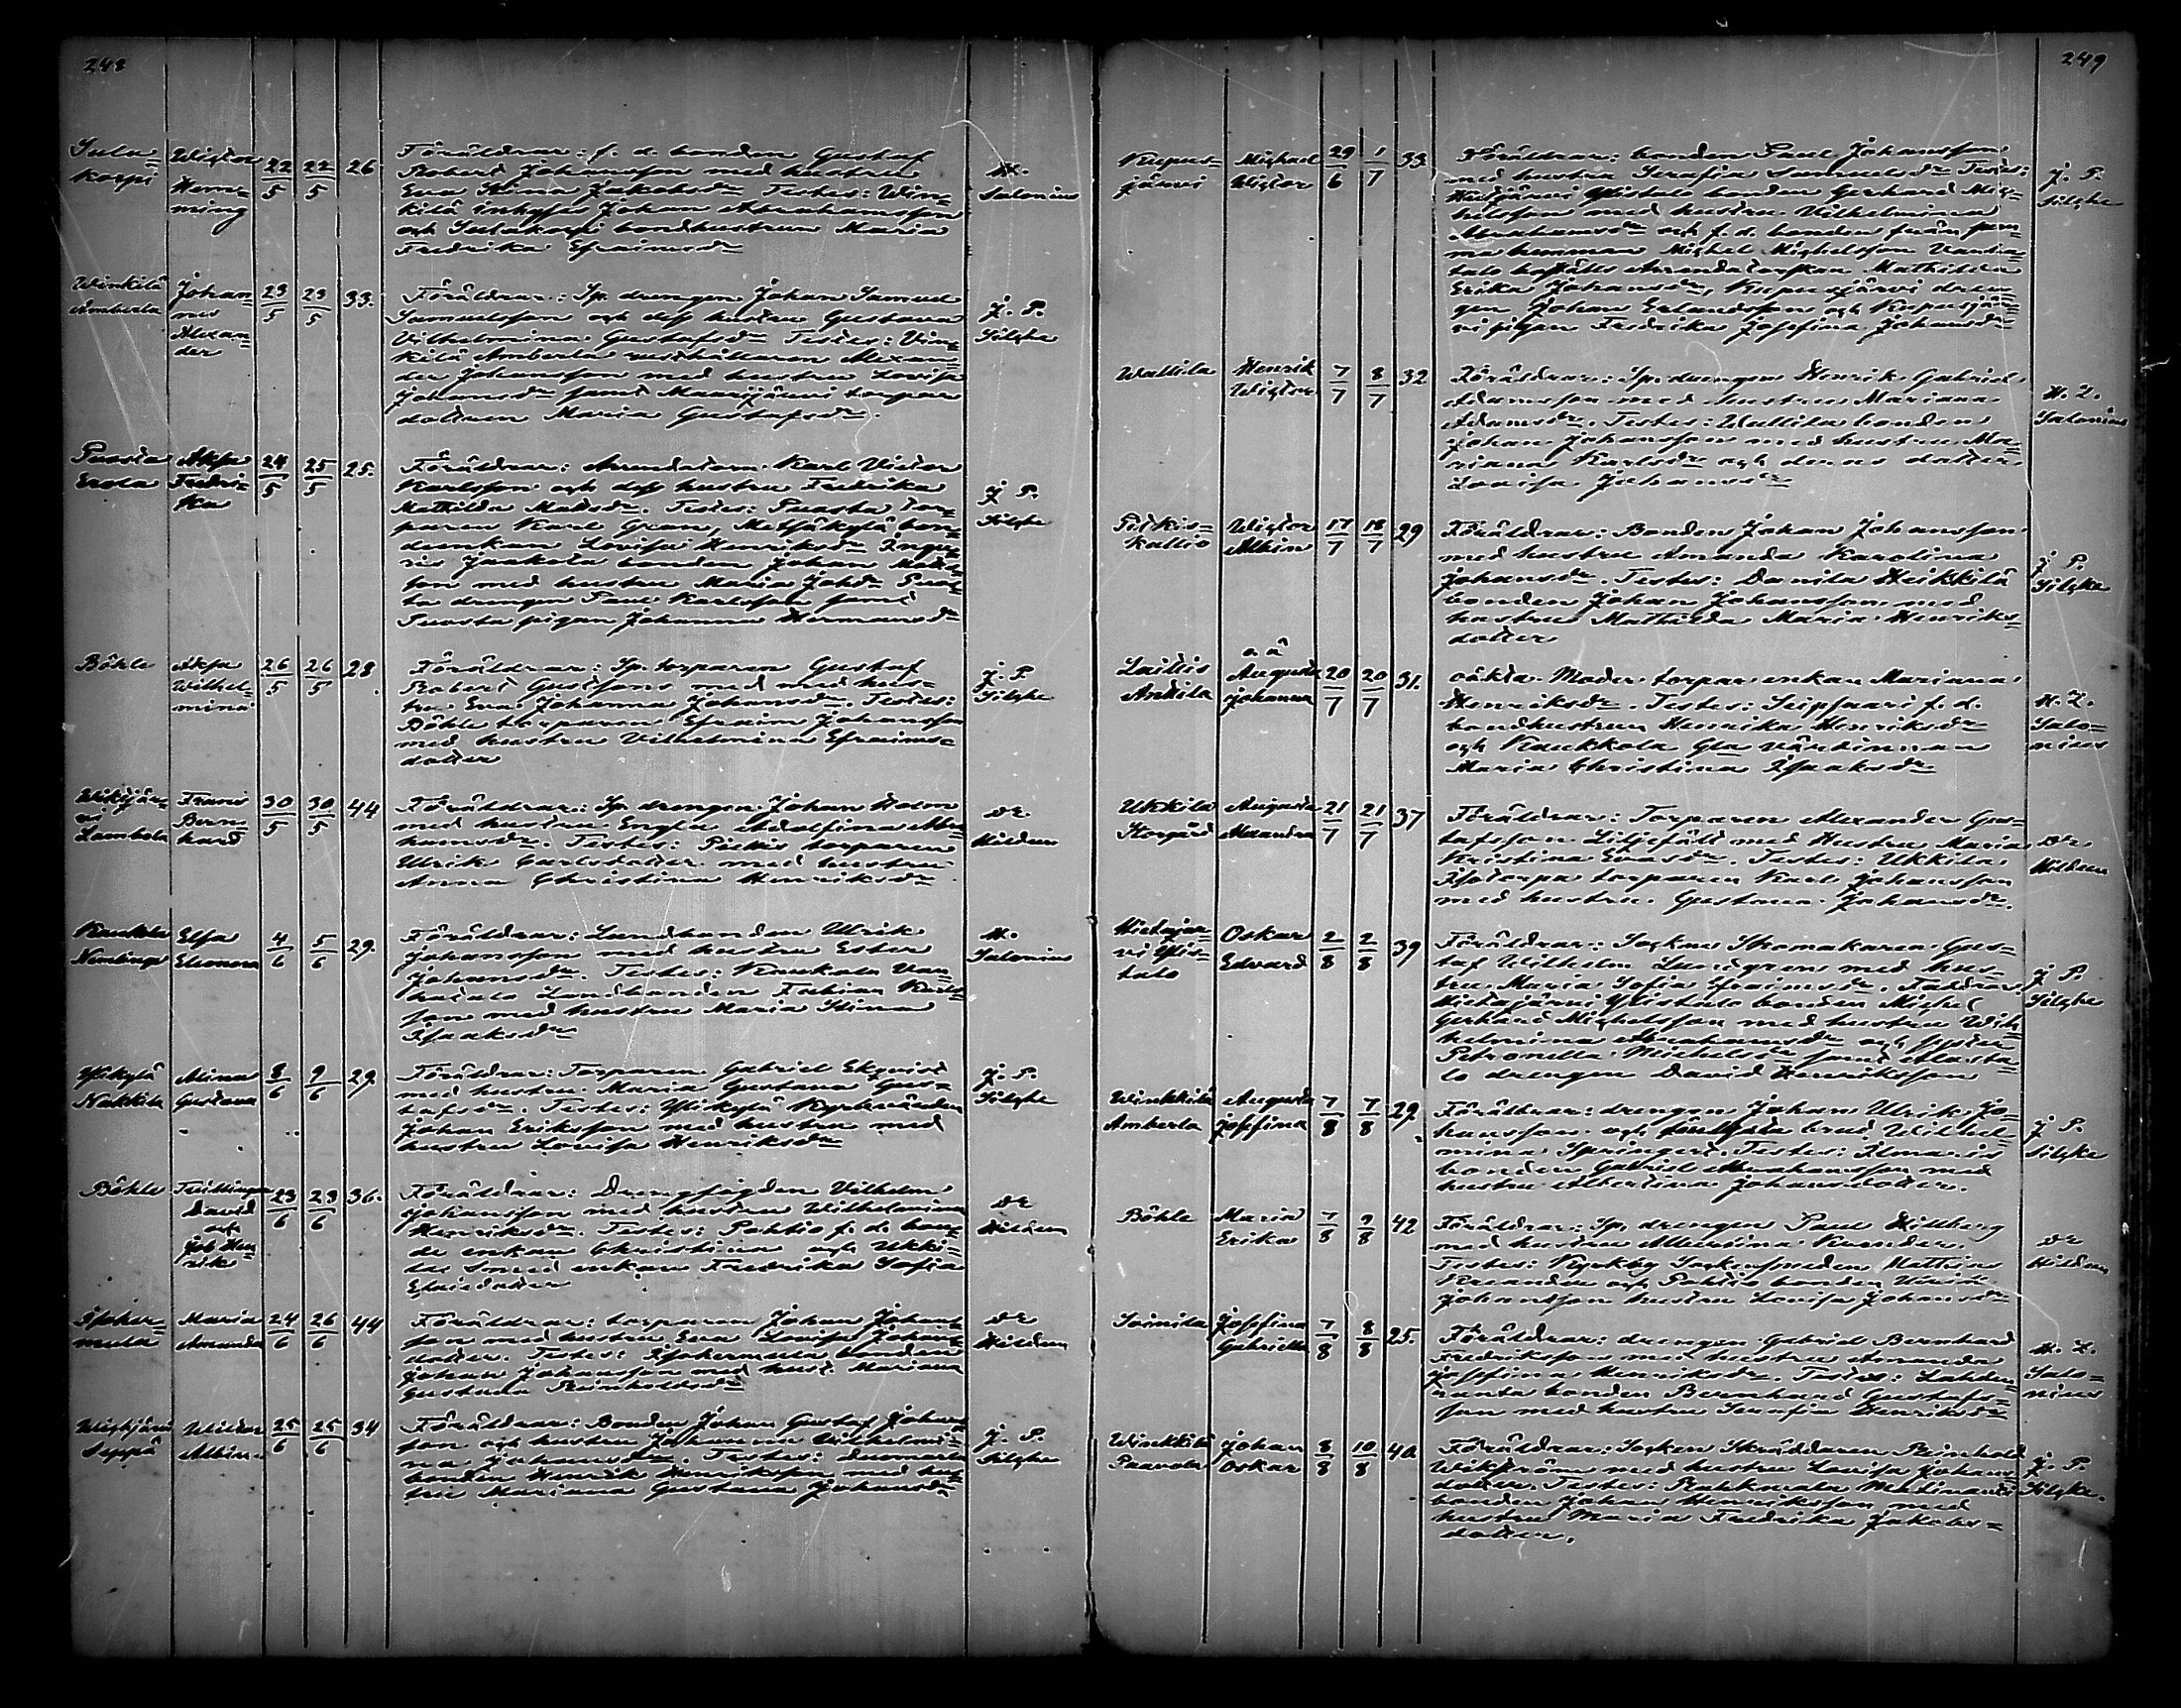 248
Sulu=
korpi
Wictor
Hem=
ming
22/5 22/5 26
Föräldrar: f. d. bonden Gustaf
Robert Johansson med hustru
Eva Stina Jakobsdr Testes: Win=
kilä inhyses Johan Abrahamsson
och Sulukorpi bondhustrun Maria
Fredrika Efraimsdr
H.
Salonius
Winkilä
Amberla
Johan=
nes
Alexan=
der
23/5 23/5 33.
Föräldrar: Sp. drengen Johan Samuel
Samuelsson och dess hustru Gustava
Vilhelmina Gustafsdr Testes: Vin=
kilä Amberla rusthållaren Alexan=
der Johansson med hustru Lovisa
Johansdr samt Maurijärvi torpar
dottren Maria Gustafsdr.
J. P.
Silqhe
Puosta
Erola
Aksa
Fredri=
ka
24/5 25/5 25.
Föräldrar: Arrendatorn Karl Victor
Karlsson och dess hustru Fredrika
Mathilda Matsdr. Testes: Puosta tor=
paren Karl Gran, Metsäkylä bon=
deenkan Lovisa Henriksdr
ris Jaakola bonden Johan
son med hustru Maria Johdr
ta drengen Paul Karlsson samt
Puosta pigan Johanna Hermansdr
J P.
Silqhe
Böhle
Aksa
Wilhel=
mina
26/5 26/5 28.
Föräldrar: Sp. torparen Gustaf
Robert Gustfsons med med hus=
tru Eva Johanna Johansdr. Testes:
Böhle torparen Efraim Johansson
med hustru Vilhelmina Efraims=
dotter
J. P.
Silqhe
Wiksjär=
vi
Lambola
Frans
Bern=
hard
30/5 30/5 44
Föräldrar: Sp. drengen Johan Holm
med hustru Engla Adolfina Abra
hamsdr. Testes: torparen
Ulrik Carlsdotter med hustru
Anna Christina Henriksdr.
dr
Hildén
Kaukola
Elsa
Eleonora
4/6 5/6 29.
Föräldrar: Landbonden Ulrik
Johansson med hustru Ester
Johansdr. Testes: Kaukola Van=
hatalo Landbonden Fabian Karls
son med hustru Maria Stina
Isaksdr
H.
Salonius
Ylikylä
Nakkila
Alina
Gustava
8/6 9/6 29.
Föräldrar: Torparen Gabriel Ekqvist
med hustru Maria Gustava Gus=
tafsdr. Testes: Ylikylä Kyrkvärden
Johan Eriksson med hustru med
hustru Lovisa Henriksdr
J. P.
Silqhe
Böhle
Tvillingar
David
och
Job Hen=
rik
23/6 23/6 36.
Föräldrar: Drengfogden Vilhelm
Johansson med hustru Wilhelmina
Henriksdr. Testes: Pahtio f. d. bon=
de enkan Christina och Ukki=
la Smed enkan Fredrika Sofia
dr
Hildén
Isoker=
meula
Maria
Amanda
24/6 26/6 44
Föräldrar: torparen Johan Johans
son med hustru Eva Lovisa Johans
dotter. Testes: bonden
Johan Johansson med hust. Mariana
Gustava Reinholdsdr
dr
Hildén
Wichjärvi
Seppä
Wictor
Albin
25/6 25/6 34
Föräldrar: Bonden Johan Gustaf Johans
son och hustru Johanna Wilhelmi=
na Johansdr. Testes:
bonden Henrik Henriksson med hus=
tru Mariana Gustava Johansdr
J. P.
Silqhe
249
Kupus=
järvi
Michael
Wictor
29/6 1/7 33.
Föräldrar: bonden Paul Johansson
med hustru Serafia Samuelsdr Testes:
Hietajärvi Ylistalo bonden Gerhard Mic=
helsson med hustru Vilhelmina
Abrahamsdr och f. d. bonden från sam=
ma hemman Michel Michelsson Vanha=
talo boställs Arrendatorskan Mathilda
Erika Johansdr, Kupusjärvi dren=
gen Johan Erlandsson och Kupusjär=
vi pigan Fredrika Josefina Johansdr
J. P.
Silqhe
Wallila
Henrik
Wictor
7/7 8/7 32
Föräldrar: Sp. drengen Henrik Gabriel
Adamsson med hustru Mariana
Adamsdr. Testes: Wallila bonden
Johan Johansson med hustru Ma=
riana Karlsdr och deras dotter
Lovisa Johansdr
H. Z.
Salonius
Pitkis=
kallio
Wictor
Albin
17/7 18/7 29
Föräldrar: Bonden Johan Johansson
med hustru Amanda Karolina
Johansdr. Testes: Danila Heikkilä
bonden Johan Johansson med
hustru Mathilda Maria Henriks=
dotter
J P.
Silqhe
Laitis
Anttila
o. ä
Augusta
Johanna
20/7 20/7 31.
oäkta. Moder: torpar enkan Mariana
Henriksdr. Testes: Seipsaari f. d.
bondhustrun Henrika Henriksdr
och Kaukkola Gla värdinnan
Maria Christina Isaksdr
H. Z.
Salo=
nius
Ukkila
Storgård
Augusta
Alexandra
21/7 21/7 37
Föräldrar: Torparen Alexander Gus=
tafsson Liljefält med Hustru Maria
Kristina Evasdr. Testes: Ukkila
Isotorpa torparen Karl Johansson
med hustru Gustava Johansdr.
Dr.
Hildén
Hietajär=
vi Ylis=
talo
Oskar
Edvard
2/8 2/8 39
Föräldrar: Sockne Skomakaren Gus=
taf Wilhelm Lundgrens med hus=
tru Maria Sofia Efraimsdr. Faddrar:
Hietajärvi Ylistalo bonden Michel
Gerhard Michelsson med hustru Wil=
helmina Abrahamsdr och syster
Petronella Michelsdr samt Alasta=
lo drengen David Henriksson
J P.
Silqhe
Winkkilä
Amberla
Augusta
Josefina
7/8 7/8 29.
Föräldrar: drengen Johan Ulrik Jo=
hansson och trolofvda brud Wilhel=
mina Springert. Testes: Ilmaris
bonden Gabriel Abrahamsson med
hustru Albertina Johansdotter.
J P.
Silqhe
Böhle
Maria
Erika
7/8 9/8 42
Föräldrar: Sp. drengen Paul Hillberg
med hustru Albertina Kreander.
Testes: Kyrkby Sockensmeden Mathias
Kreander och Pahtis bonden Ulrik
Johansson hustru Lovisa Johansdr
Dr
Hildén
Soinila
Josefina
Gabriella
7/8 8/8 25.
Föräldrar: drengen Gabriel Bernhard
Fredriksson med hustru Amanda
Josefina Henriksdr. Testes: Lahden=
ranta bonden Bernhard Gustafs=
son med hustru Serafia Henriksdr
H. Z.
Salo=
nius
Winkkilä
Paavola
Johan
Oskar
8/8 10/8 40.
Föräldrar: Socken Skräddaren Reinhold
Wikström med hustru Lovisa Johans=
dotter. Testes: Rahkavala
bonden Johan Henriksson med
hustru Maria Fredrika Jakobs=
dotter.
J. P.
Silqhe.